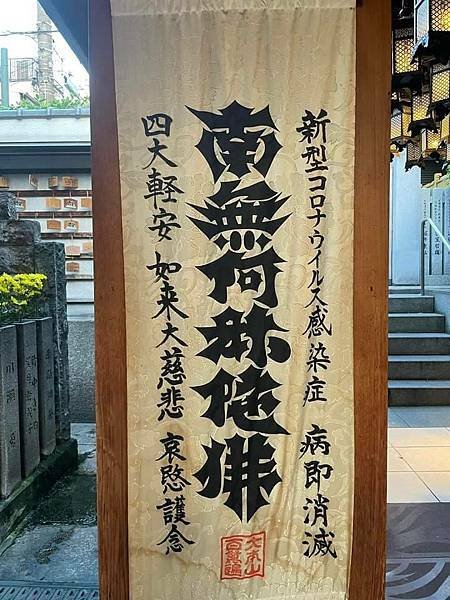 新型コロナウイルス感染症 病即消滅
南無阿弥陀佛
四大軽安 如来大慈悲 哀愍護念
大本山
百萬遍